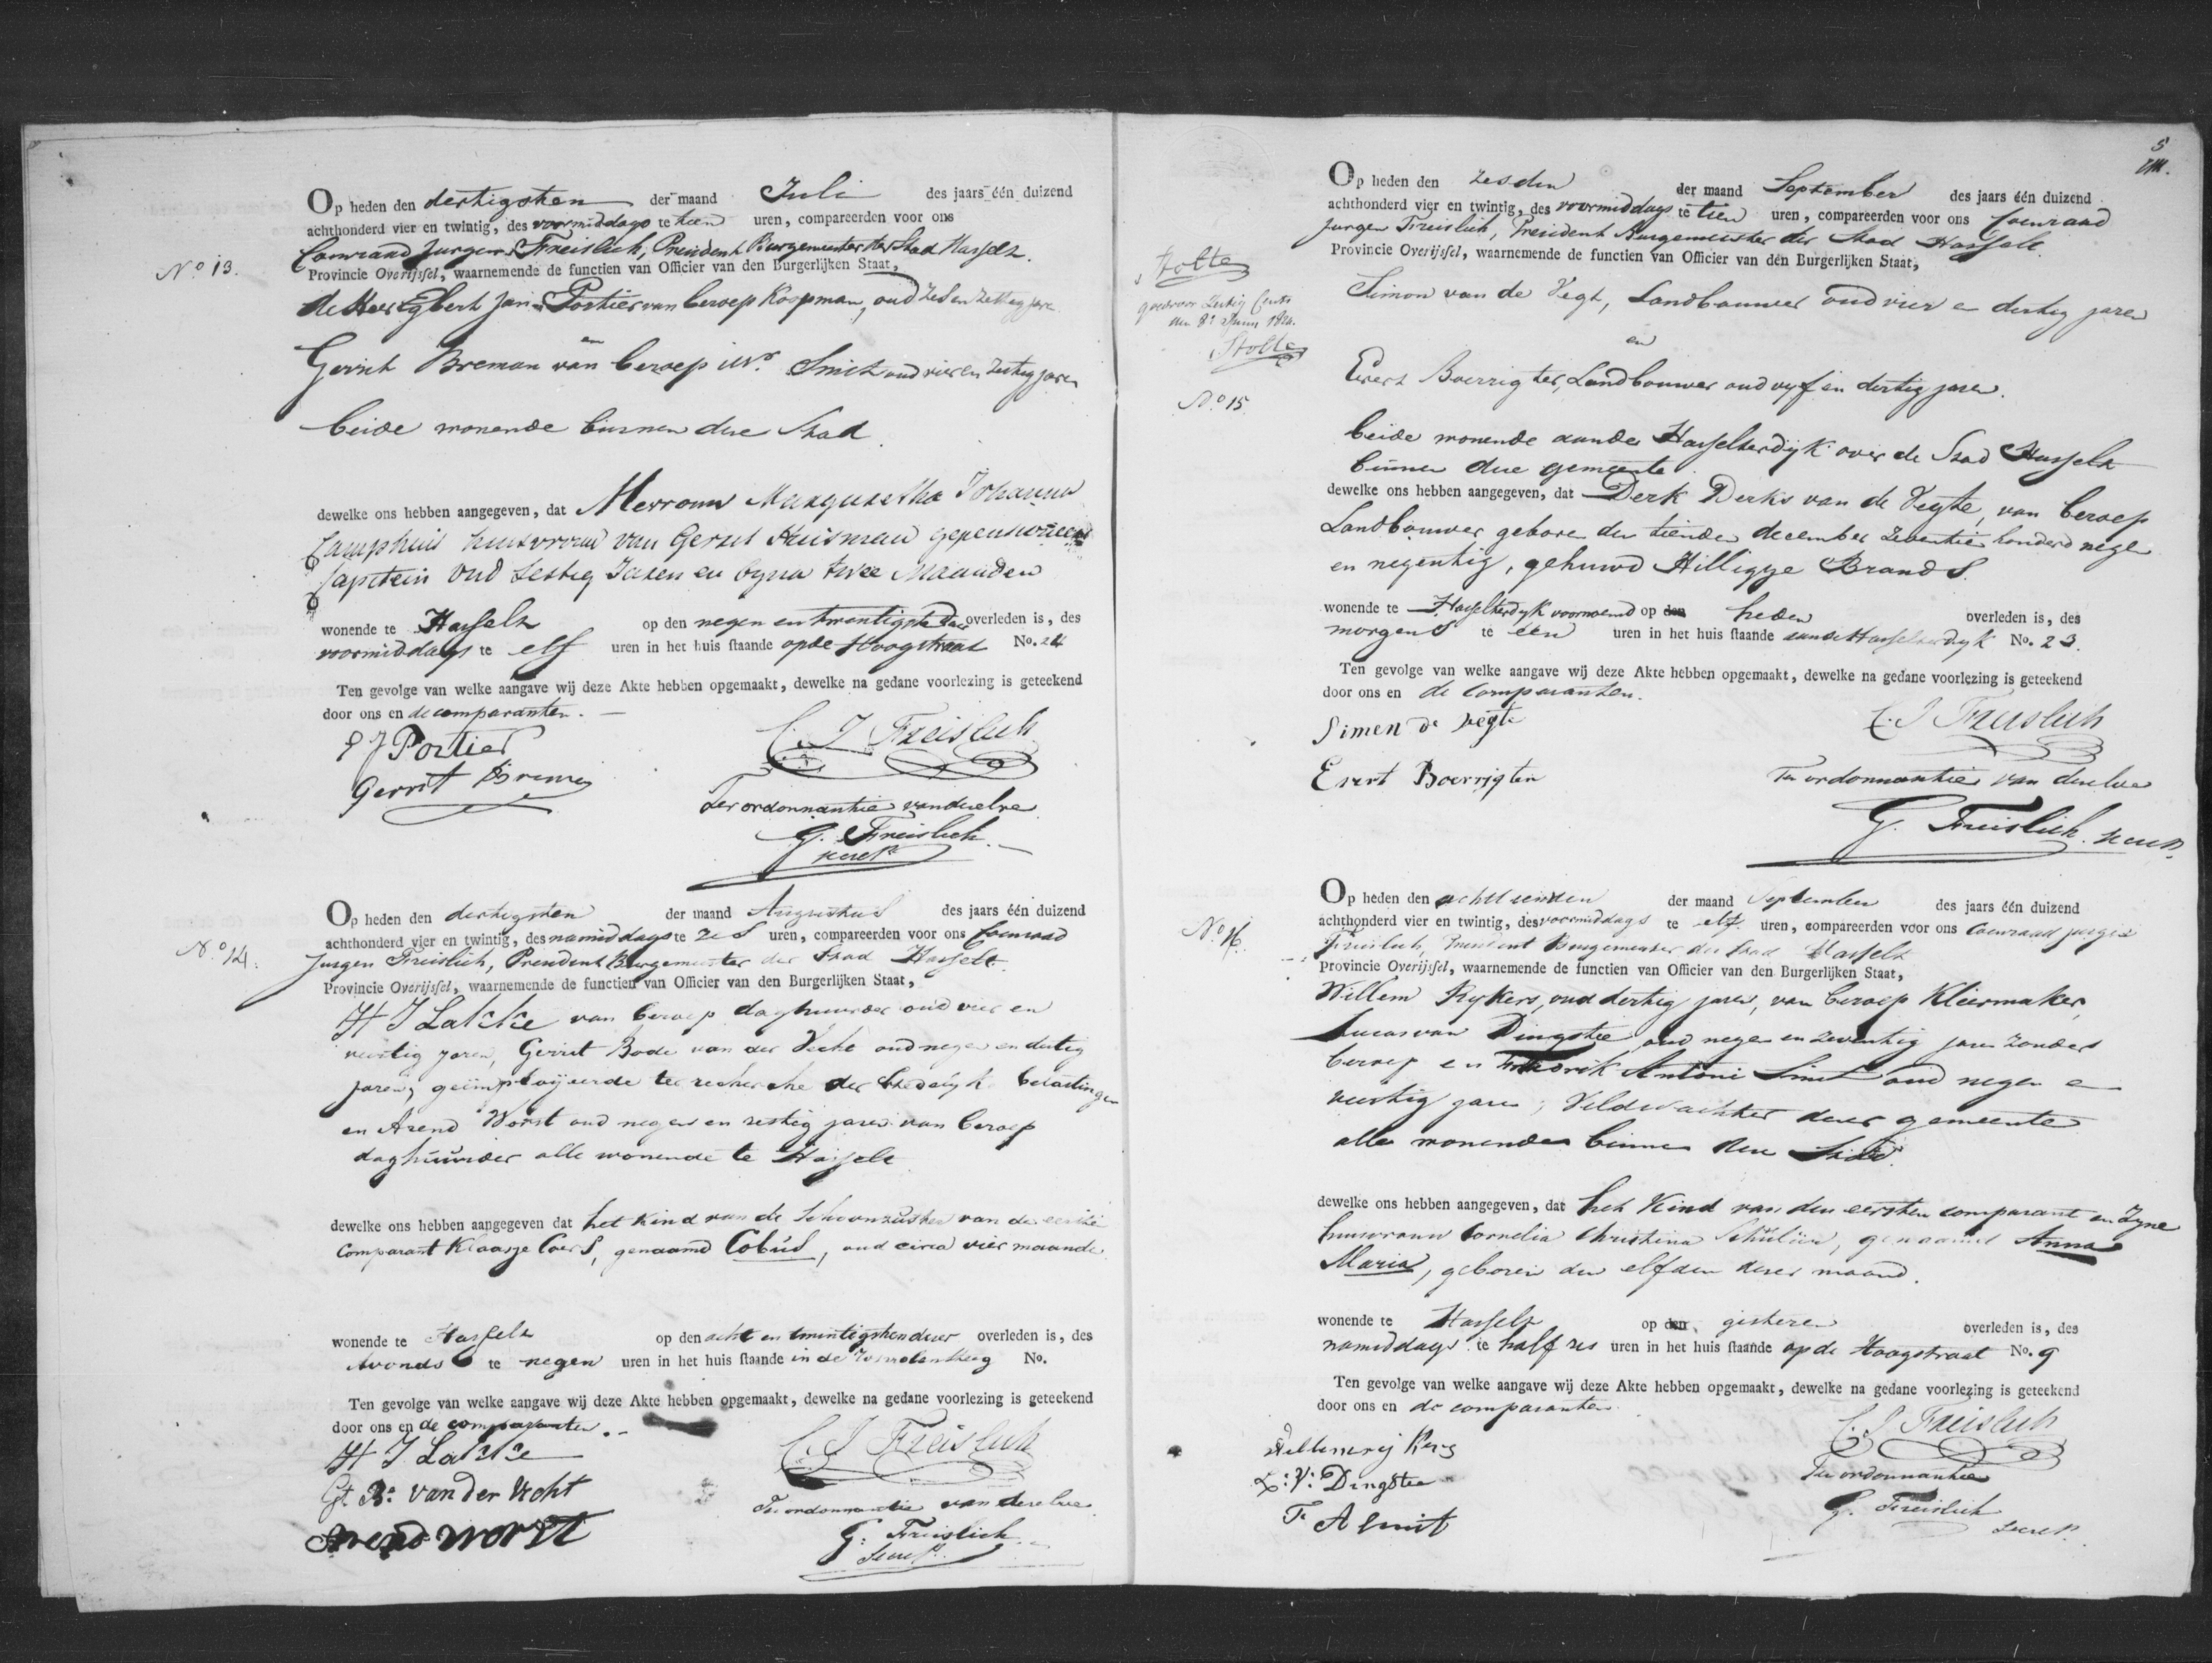 Op heden den dertigsten der maand Juli des jaars één duizend
achthonderd vier en twintig, des voormiddags te tien uren, compareerden voor ons
Coenraad Jurgen Freislich, President Burgemeester der Stad Hasselt.
No 13.
Provincie Overijssel, waarnemende de functien van Officier van den Burgerlijken Staat,
de Heer Egbert Jan Portier van beroep Koopman, oud zes en zestig jare
en
Gerrit Breman van beroep Smit oud vier en zestig jaren
beide wonende binnen deze Stad.
dewelke ons hebben aangegeven, dat Mevrouw Margaretha Johanna
Camphuis huisvrouw van Gerrit Huisman gepensioneerd
Capitein oud sestig Jaren en byna twee Maanden
wonende te Hasselt op den negen en twintigste dezer overleden is, des
voormiddags te elf uren in het huis staande op de Hoogstraat No. 24
Ten gevolge van welke aangave wij deze Akte hebben opgemaakt, dewelke na gedane voorlezing is geteekend
door ons en de comparanten.
E J Portier
C. J Freislich
Gerrit Breman
Ter ordonnantie van dezelve
G. Freislich
secrets
Op heden den dertigsten der maand Augustus des jaars één duizend
achthonderd vier en twintig, des namiddags te zes uren, compareerden voor ons Coenraad
No 14.
Jurgen Freislich, President Burgemeester der Stad Hasselt.
Provincie Overijssel, waarnemende de functien van Officier van den Burgerlijken Staat,
H J Lakke van beroep daghuurder oud vier en
veertig jaren, Gerrit Bode van der Vecht oud negen en dertig
jaren, geimploijeerde ter recherche der Stedelyke belastingen
en Arend Worst oud negen en sestig jaren van beroep
daghuurder alle wonende te Hasselt
dewelke ons hebben aangegeven dat het Kind van de Schoonzuster van de eerste
Comparant Klaasje Coers, genaamd Cobus, oud circa vier maande
wonende te Hasselt op den acht en twintigsten dezer overleden is, des
Avonds te negen uren in het huis staande in de No.
Ten gevolge van welke aangave wij deze Akte hebben opgemaakt, dewelke na gedane voorlezing is geteekend
door ons en de comparanten.
H J Lakke
C. J Freislich
Gt. B: van der Vecht
Ter ordonnantie van dezelve
Arend Worst
G. Freislich
Secrets
5
Op heden den zesden der maand September des jaars één duizend
achthonderd vier en twintig, des voormiddags te tien uren, compareerden voor ons Coenraad
Jurgen Freislich, President Burgemeester der Stad Hasselt.
Provincie Overijssel, waarnemende de functien van Officier van den Burgerlijken Staat,
Stolte
Simon van de Vegt, Landbouwer oud vier en dertig jaren
en
Stolte
Evert Boerrigter, Landbouwer oud vyf en dertig jaren.
No 15
beide wonende aan de Hasselterdyk over de Stad Hasselt
binnen deze gemeente
dewelke ons hebben aangegeven, dat Derk Derks van de Vegte, van beroep
Landbouwer geboren den tienden december zeventien honderd negen
en negentig, gehuwd Hilligje Brands.
wonende te Hasselterdyk voornoemd op den heden overleden is, des
morgens te één uren in het huis staande aan de Hasselterdyk No. 23.
Ten gevolge van welke aangave wij deze Akte hebben opgemaakt, dewelke na gedane voorlezing is geteekend
door ons en de comparanten.
Simen de vegte
C. J Freislich
Evert Boerrigter
Ter ordonnantie van dezelve
G. Freislich. secrets.
Op heden den achttienden der maand September des jaars één duizend
achthonderd vier en twintig, des voormiddags te elf uren, compareerden voor ons Coenraad Jurgen
No 16.
Freislich, President Burgemeester der Stad Hasselt
Provincie Overijssel, waarnemende de functien van Officier van den Burgerlijken Staat,
Willem Rykers, oud dertig jaren, van beroep Kleermaker,
Lucas van Dingstee oud negen en zeventig jaren zonder
beroep en Fredrik Antoni Smit oud negen en
veertig jaren, Veldwachter dezer gemeente
alle wonende binnen deze Stad.
dewelke ons hebben aangegeven, dat het Kind van den eersten comparant en Zyne
huisvrouw Cornelia Christina, genaamd Anna
Maria, geboren den elfden dezer maand.
wonende te Hasselt op den gisteren overleden is, des
namiddags te half zes uren in het huis staande op de Hoogstraat No. 9
Ten gevolge van welke aangave wij deze Akte hebben opgemaakt, dewelke na gedane voorlezing is geteekend
door ons en de comparanten
C. J Freislich
Willem rij kers
L: V: Dingstee
Ter ordonnantie
F A Smit
G. Freislich
secrets.